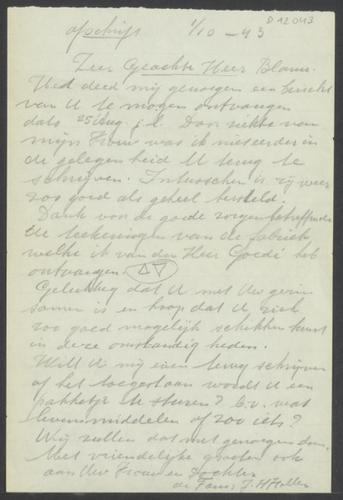 D 12043
afschrift 1/10 - 43
Zeer Geachte Heer Blaum.
Ued deed mij genoegen een bericht
van U te mogen ontvangen
dato 25 Aug j.l. Door ziekte van
mijn Vrouw was ik niet eerder in
de gelegenheid U terug te
schrijven. Intusschen is zij weer
zoo goed als geheel hersteld.
Dank voor de goede zorgen betreffende
de teekeningen van de fabriek
welke ik van den Heer Goedi heb
ontvangen.
Gelukkig dat U met Uw gezin
samen is en hoop dat U zich
zoo goed mogelijk schikken kunt
in deze omstandigheden.
Wilt U mij even terug schrijven
of het toegestaan wordt U een
pakketje te sturen? b.v. wat
levensmiddelen of zoo iets?
Wij zullen dat met genoegen doen.
Met vriendelijke groeten ook
aan Uw Vrouw en Dochter
de Fam. J. H.